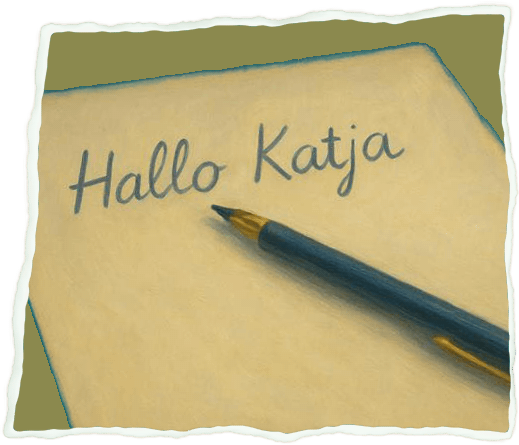 Hallo Katja